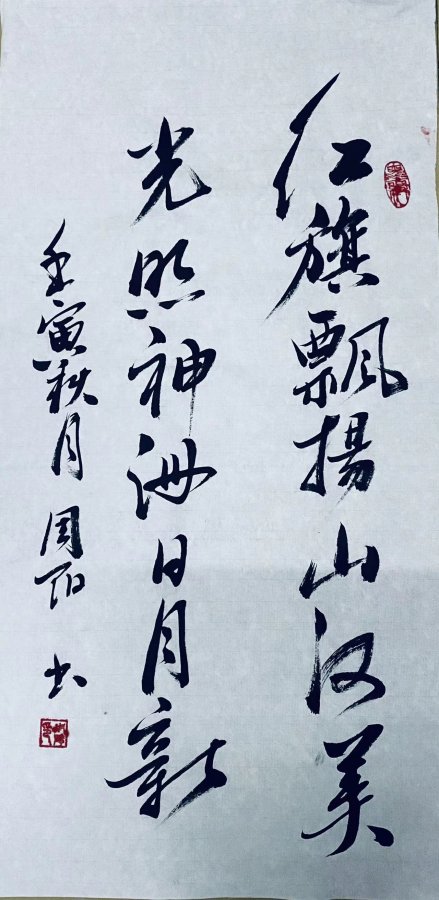 红旗飘揚山河美
光照神洲日月新
壬寅秋月 周阳 书